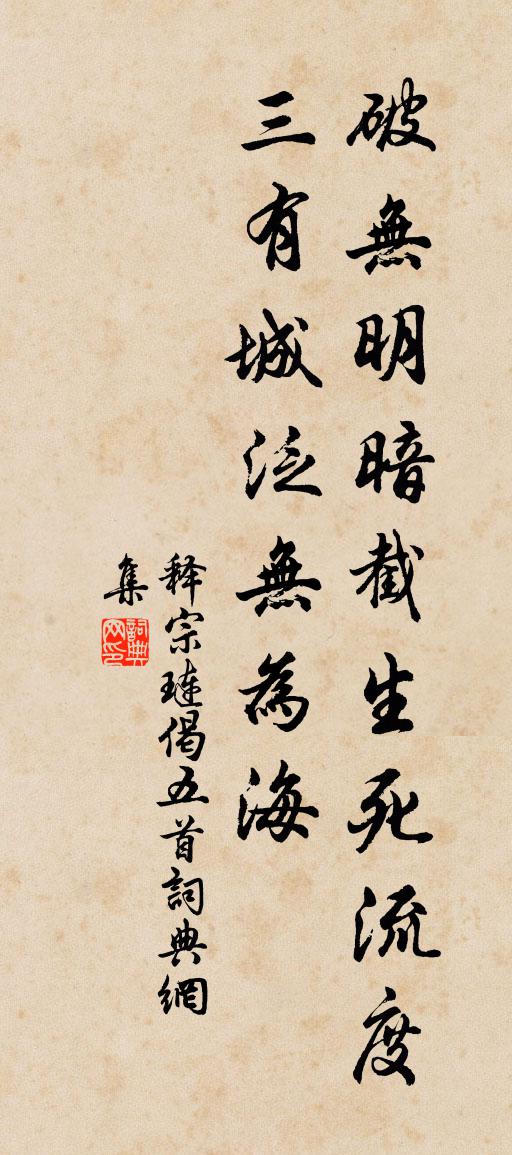 破無明暗截生死流度
三有城泛無為海
释宗璉偈五首詞典網
集
詞典
网印